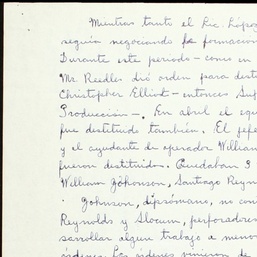 Mientras tanto el Lic. López
seguía negociando la formacion
Durante este periodo – como en
Mr. Reedler dió orden para dest
Christopher Elliot – entonces Sup
Produccion –. En abril el equ
fue destituido tambien. El jefe
y el ayudante de operador William
fueron destituidos. Quedaban 3
William Johonson, Santiago Reyn
Johnson, dipsómano, no con
Reynolds y Slocum, perforadores
sarrollar algun trabajo a meno
órdenes. Las ordenes vinieron de